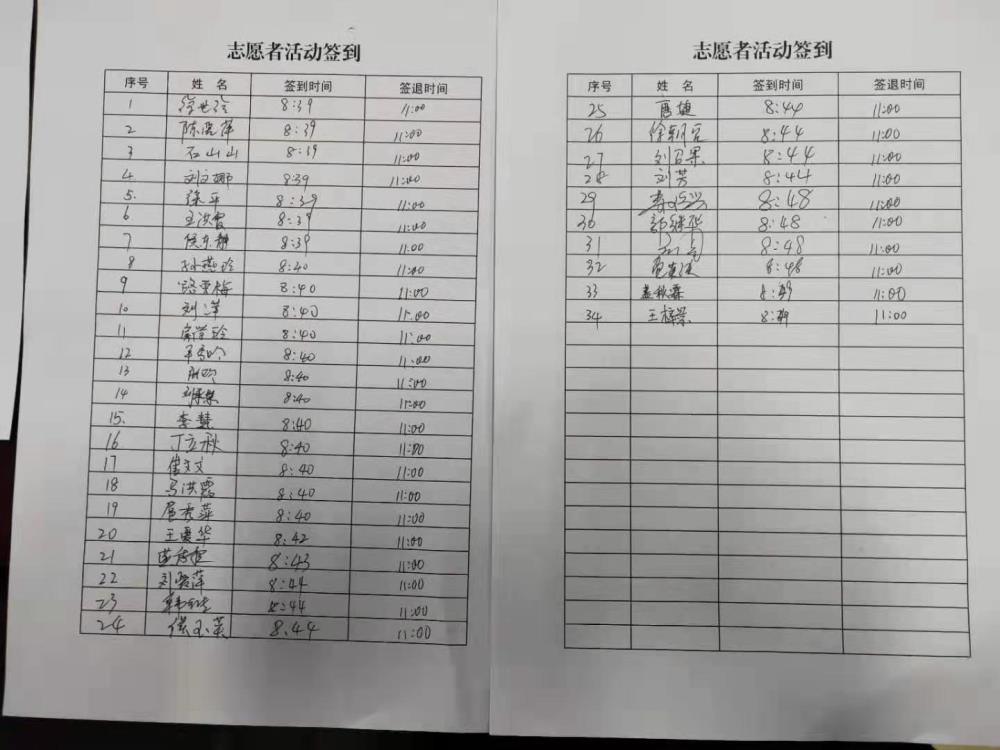 志愿者活动签到
序号 姓名 签到时间 签退时间
1 8:39 11:00
2 陈晓萍 8:39 11:00
3 石山山 8:39 11:00
4 刘立娜 8:39 11:00
5. 徐平 8:39 11:00
6 王洪霞 8:39 11:00
7 侯东静 8:39 11:00
8 孙燕玲 8:40 11:00
9 路雪梅 8:40 11:00
10 刘洋 8:40 11:00
11 8:40 11:00
12 8:40 11:00
13 8:40 11:00
14 8:40 11:00
15. 李慧 8:40 11:00
16 丁立秋 8:40 11:00
17 崔文文 8:40 11:00
18 马洪霞 8:40 11:00
19 8:40 11:00
20 王爱华 8:42 11:00
21 8:43 11:00
22 刘晓萍 8:44 11:00
23 8:44 11:00
24 侯玉英 8:44 11:00
志愿者活动签到
序号 姓名 签到时间 签退时间
25 8:44 11:00
26 8:44 11:00
27 8:44 11:00
28 刘芳 8:44 11:00
29 8:48 11:00
30 郭继华 8:48 11:00
31 8:48 11:00
32 8:48 11:00
33 孟秋霖 8:49 11:00
34 8:49 11:00